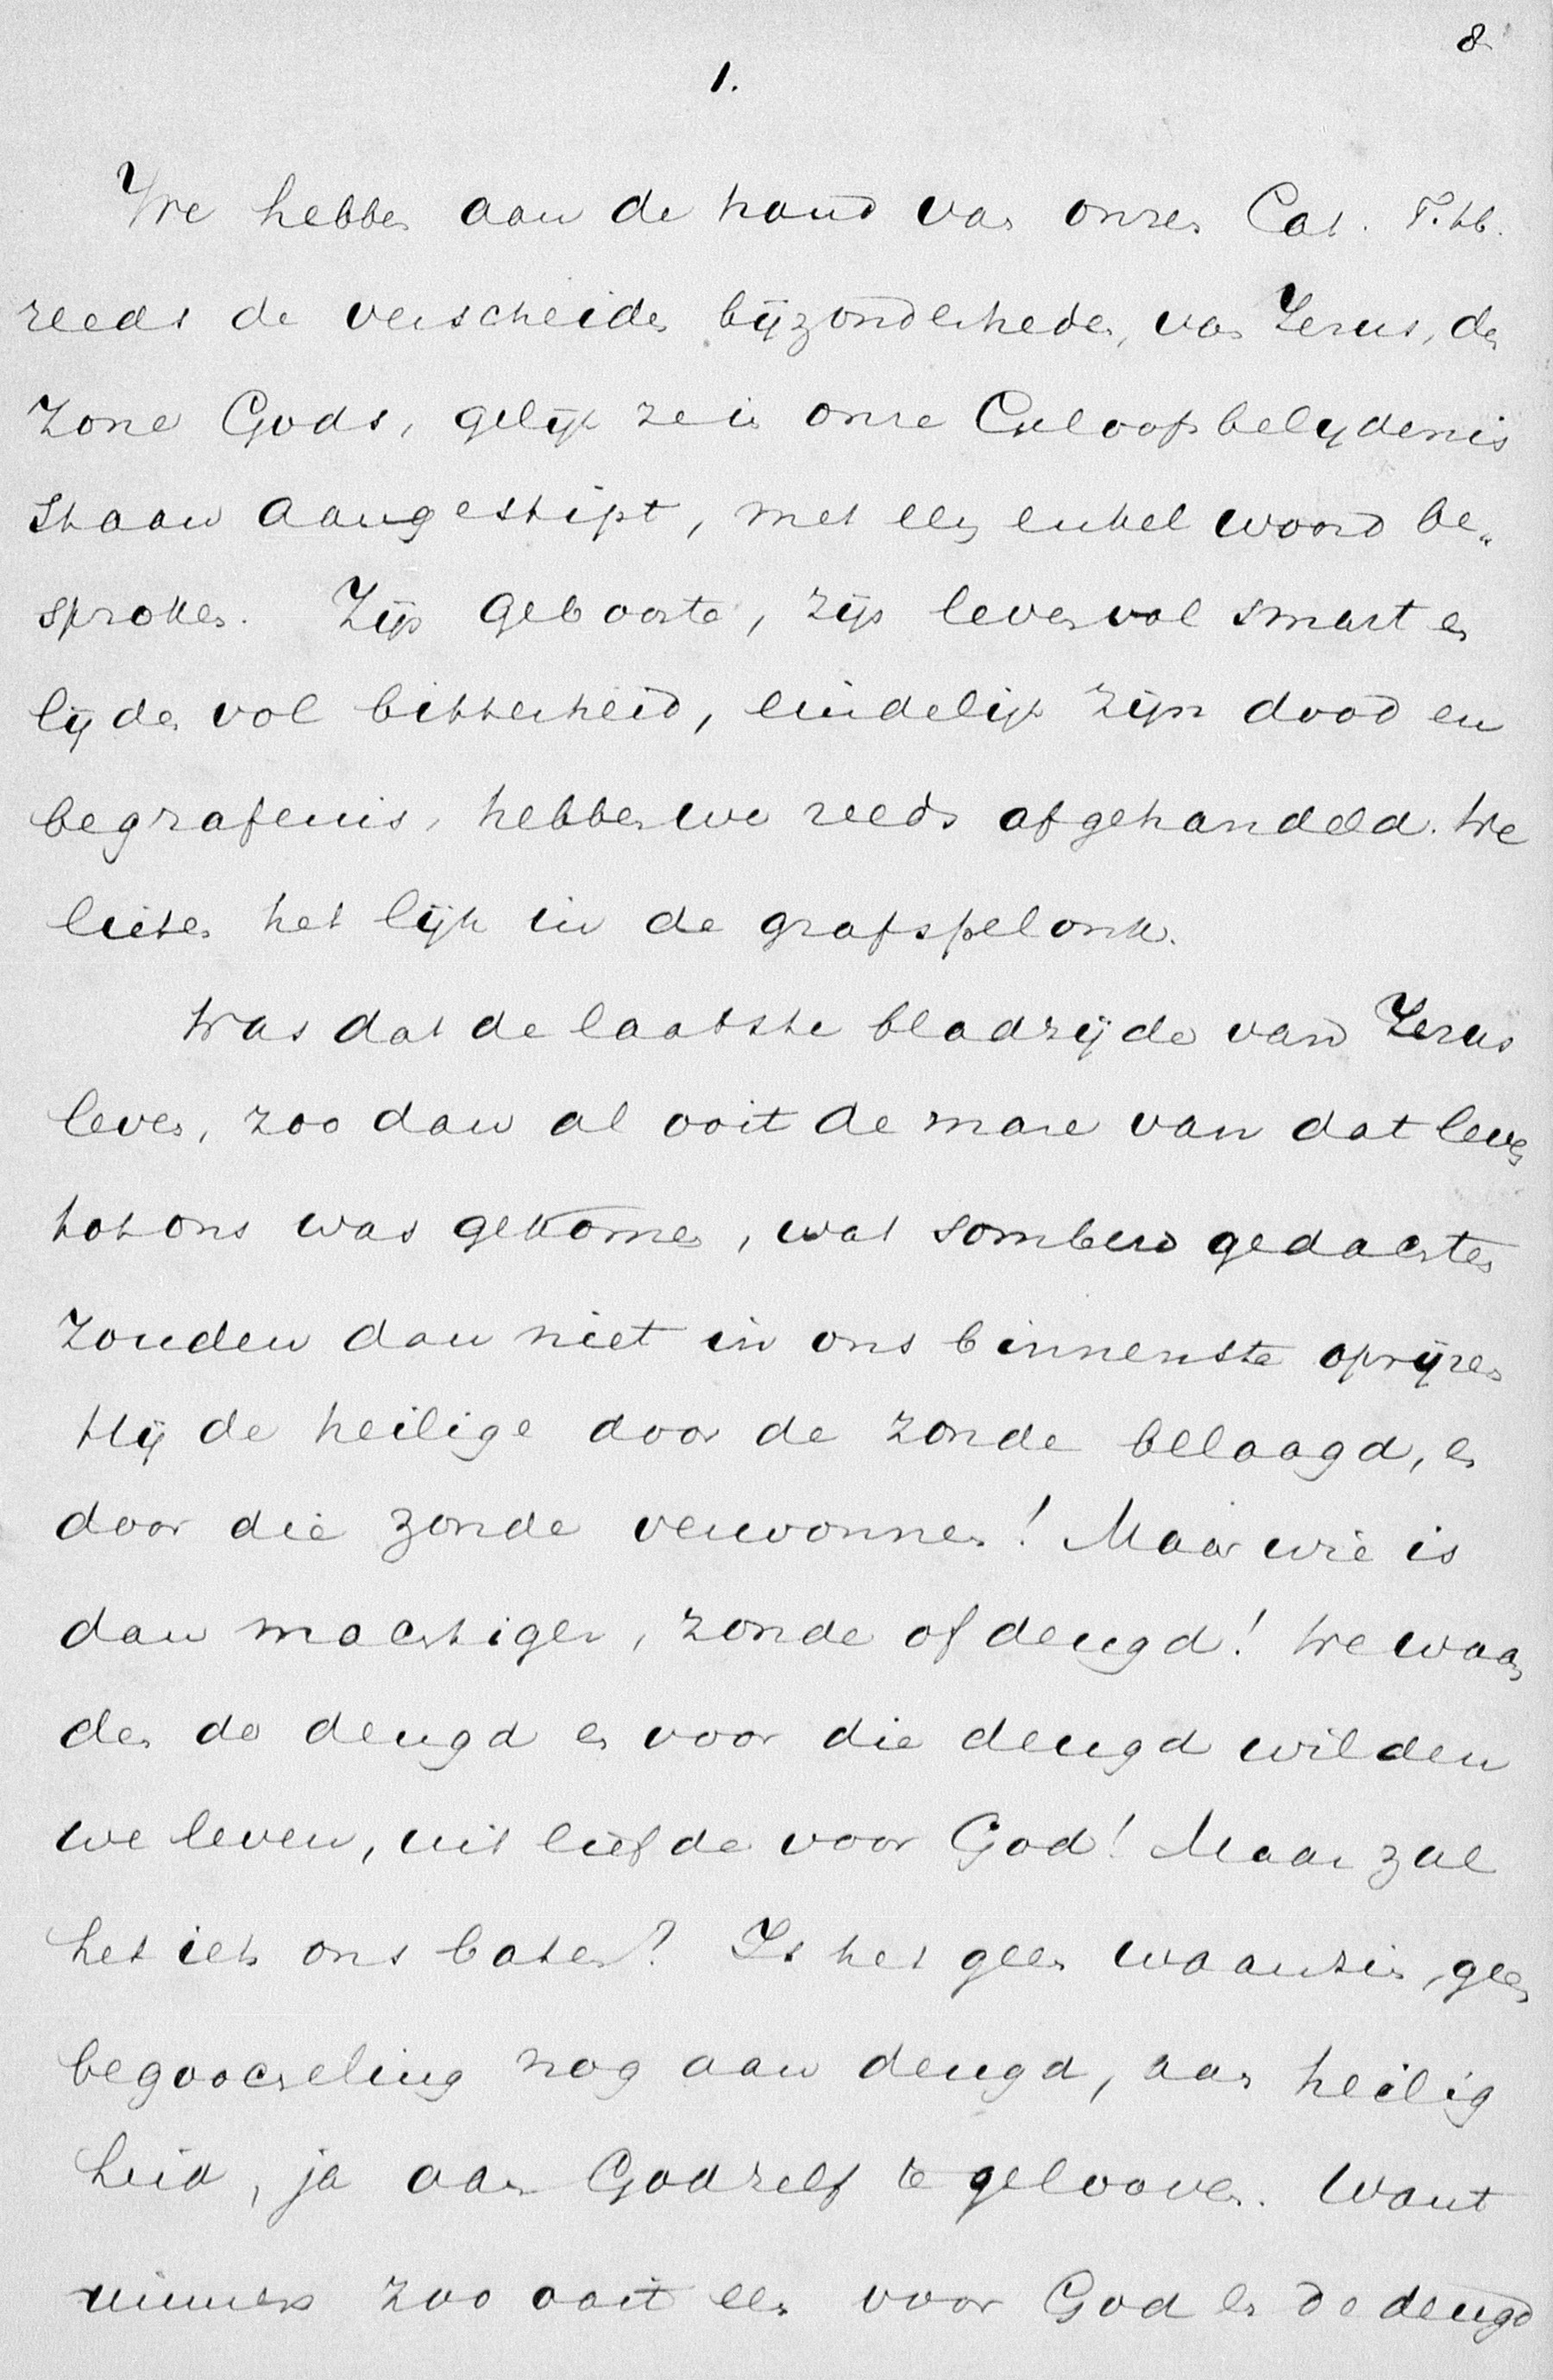 8
1.
We hebben aan de hand van onzen Cat.
reeds de verscheiden bijzonderheden, van Jezus, den
Zone Gods, gelijk ze in onze Geloofsbelijdenis
staan aangestipt, met een enkel woord be„
sproken. Zijn geboorte, zijn leven vol smart en
lijden vol bitterheid, eindelijk zijn dood en
begrafenis, hebben we reeds afgehandeld. We
lieten het lijk in de grafspelonk.
Was dat de laatste bladzijde van Jezus
leven, zoo dan al ooit de mare van dat leven
tot ons was gekomen, wat sombere gedachten
zouden dan niet in ons binnenste oprijzen
Hij de heilige door de zonde belaagd, en
door die zonde verwonnen! Maar wie is
dan machtiger, zonde of deugd! We waan
den de deugd en voor die deugd wilden
we leven, uit liefde voor God! Maar zal
het iets ons baten? Is het geen waanzin, geen
begoocheling nog aan deugd, aan heilig
heid, ja aan God zelf te gelooven. Want
nimmer zoo ooit een voor God en de deugd